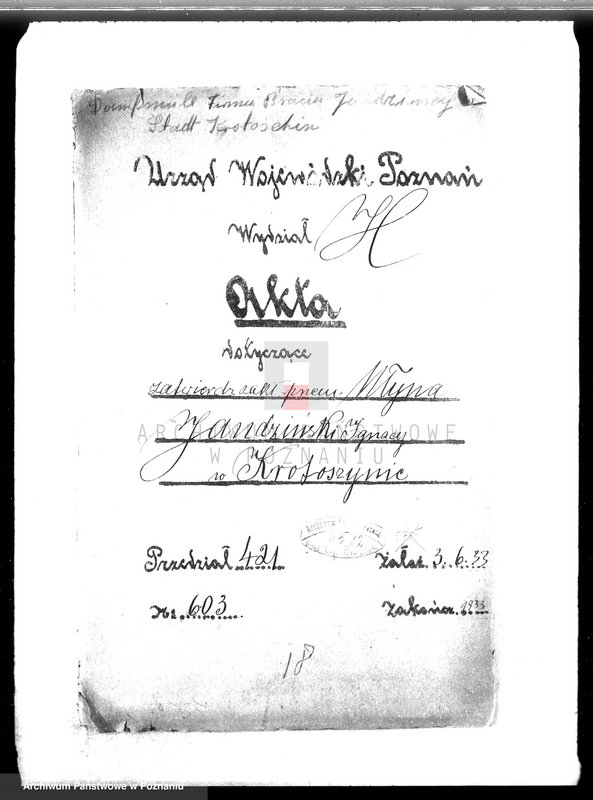 Dampfmühle Firma Bracia Jandzińscy
Stadt Krotoschin
Urząd Wojewódzki Poznań
Wydział H
Akta
dotyczące
zatwierdz. zakł. przem. Młyna
Jandziński Ignacy
w Krotoszynie
ARCHIWUM PAŃSTWOWE
W POZNANIU
Przedział 421
Założ. 3.6.33
Nr. 603
Zakończ. 1933
18
Archiwum Państwowe w Poznaniu